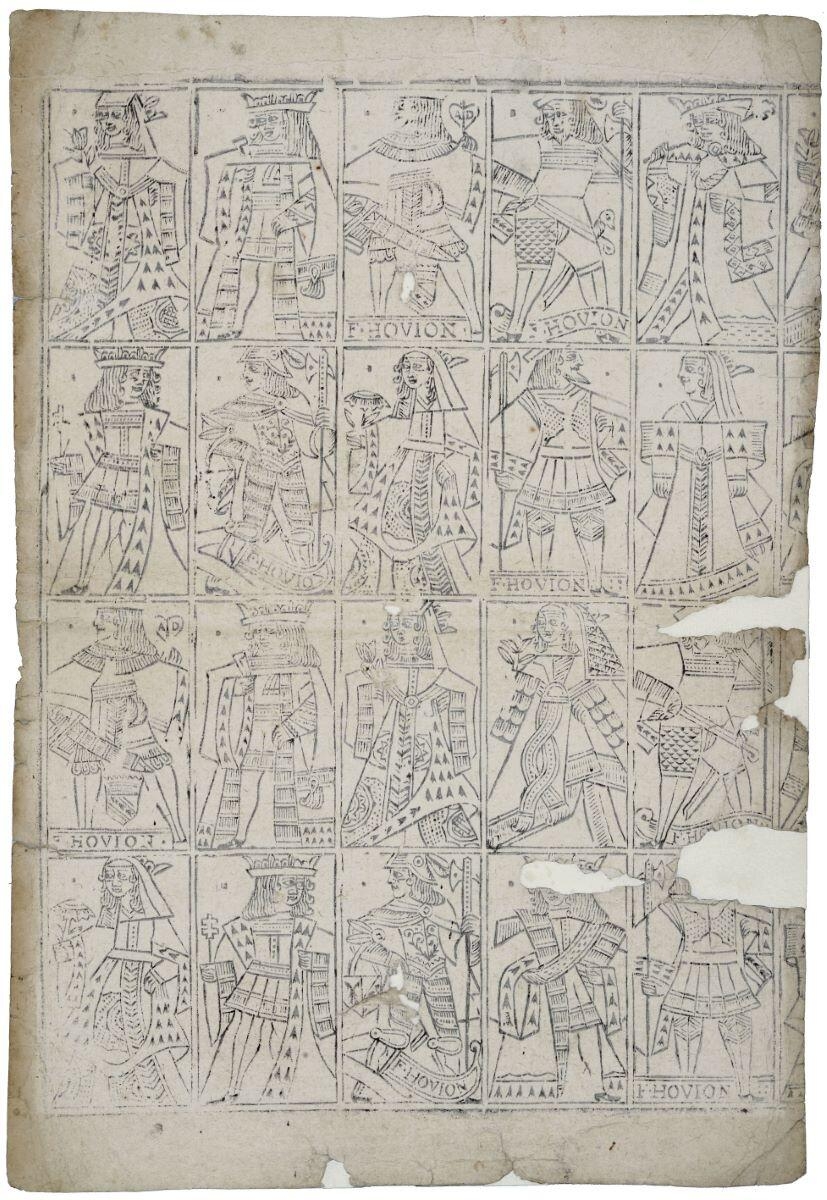 AD
F·HOVION·
F·HOVION
F·HOVION
F·HOVION
AD
F·HOVION·
F·HOVION
F·HOVION
F·HOVION